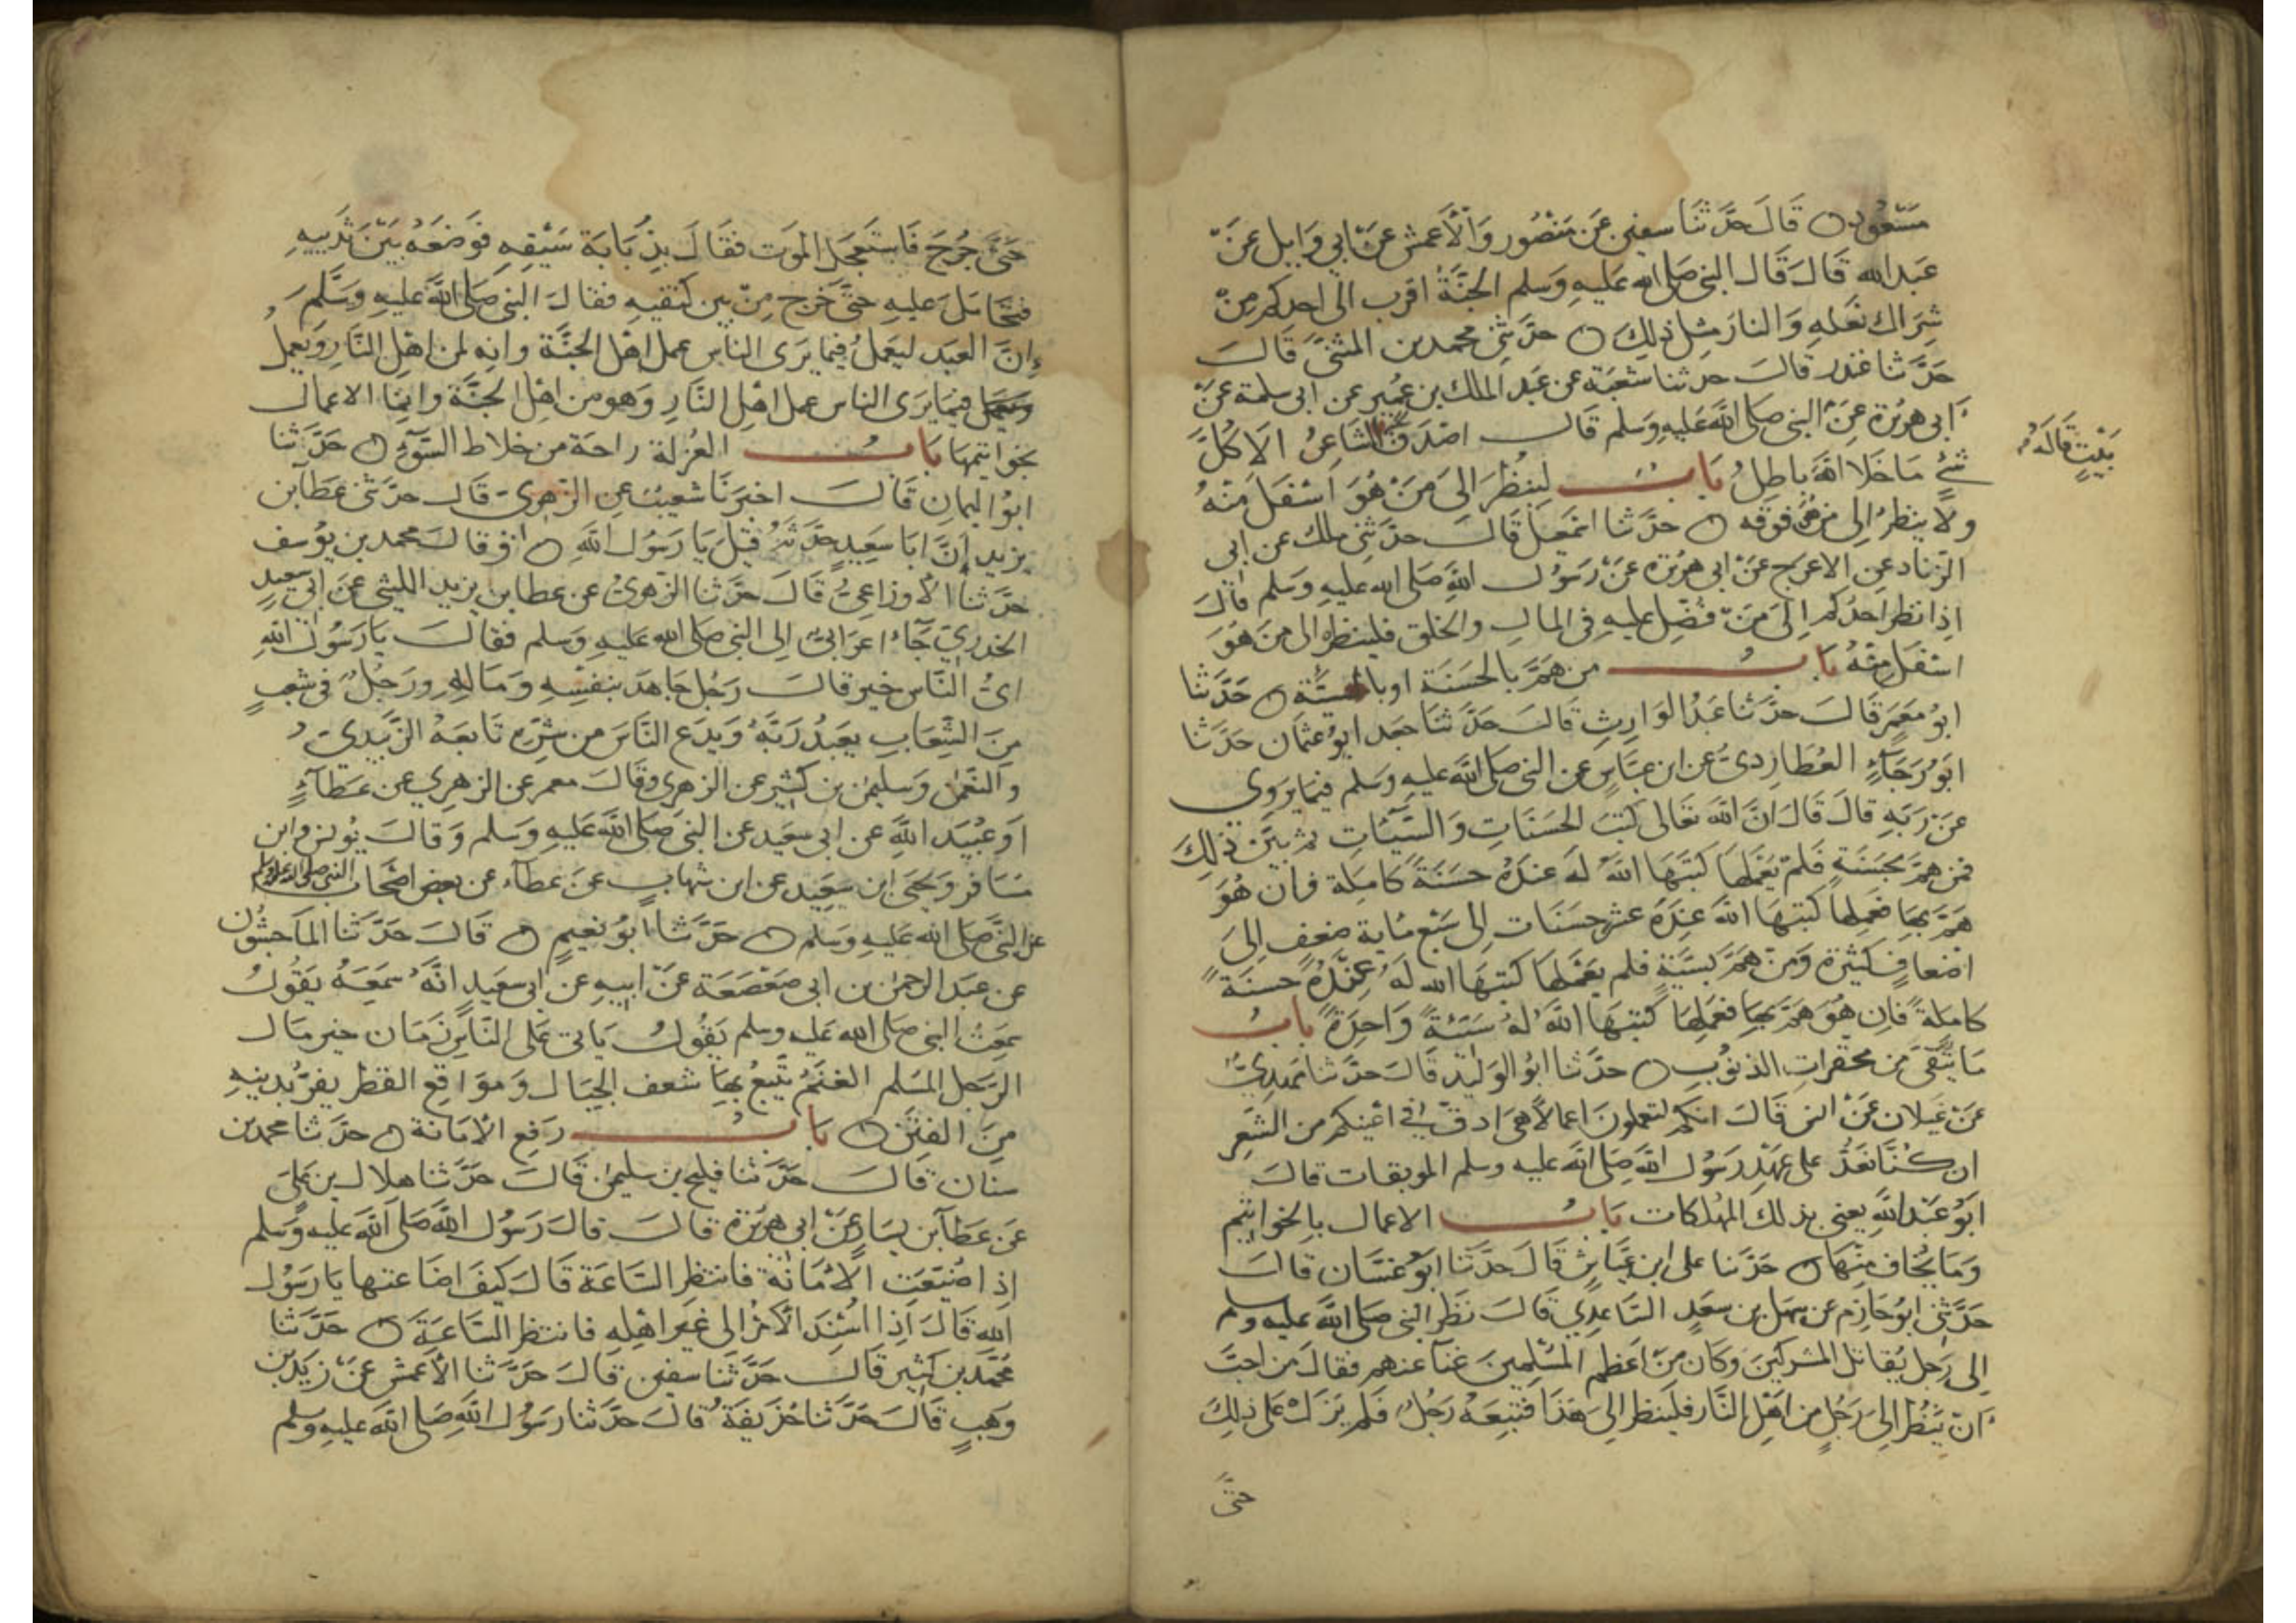 مسعود قال حدثنا سفين عن منصور والأعمش عن ابي وايل عن
عبد الله قال قال النبي صلى الله عليه وسلم الجنة اقرب الى احدكم من
شراك نعله والنار مثل ذلك حدثني محمد بن المثنى قال
حدثنا غندر قال حدثنا شعبة عن عبد الملك بن عمير عن ابي سلمة عن
ابي هريرة عن النبي صلى الله عليه وسلم قال اصدق الشاعر الا كل
بيت قاله
شئ ما خلا الله باطل باب لينظر الى من هو اسفل منه
ولا ينظر الى من هو فوقه حدثنا اسمعيل قال حدثني ملك عن ابي
الزناد عن الاعرج عن ابي هريرة عن رسول الله صلى الله عليه وسلم قال
اذا نظر احدكم الى من فضل عليه في المال والخلق فلينظر الى من هو
اسفل منه باب من هم بالحسنة او بالسيئة حدثنا
ابو معمر قال حدثنا عبد الوارث قال حدثنا جعد ابو عثمان حدثنا
ابو رجاء العطاردي عن ابن عباس عن النبي صلى الله عليه وسلم فيما يروي
عن ربه قال قال ان الله تعالى كتب الحسنات والسيئات ثم بين ذلك
فمن هم بحسنة فلم يعملها كتبها الله له عنده حسنة كاملة فان هو
هم بها فعملها كتبها الله عنده عشر حسنات الى سبع ماية ضعف الى
اضعاف كثيرة ومن هم بسيئة فلم يعملها كتبها الله له عنده حسنة
كاملة فان هو هم بها فعملها كتبها الله له سيئة واحدة باب
ما يتقى من محقرات الذنوب حدثنا ابو الوليد قال حدثنا مهدي
عن غيلان عن انس قال انكم لتعملون اعمالا هي ادق في اعينكم من الشعر
ان كنا نعد على عهد رسول الله صلى الله عليه وسلم الموبقات قال
ابو عبد الله يعني بذلك المهلكات باب الاعمال بالخواتيم
وما يخاف منها حدثنا على ابن عياش قال حدثنا ابو غسان قال
حدثني ابو حازم عن سهل بن سعد الساعدي قال نظر النبي صلى الله عليه وسلم
الى رجل يقاتل المشركين وكان من اعظم المسلمين غناء عنهم فقال من احب
ان ينظر الى رجل من اهل النار فلينظر الى هذا فتبعه رجل فلم يزل على ذلك
حتى
حتى جرح فاستعجل الموت فقال بذبابة سيفه فوضعه بين ثدييه
فتحامل عليه حتى خرج من بين كتفيه فقال النبي صلى الله عليه وسلم
ان العبد ليعمل فيما يرى الناس عمل اهل الجنة وانه لمن اهل النار ويعمل
فيما يرى الناس عمل اهل النار وهو من اهل الجنة وانما الاعمال
بخواتيمها باب العزلة راحة من خلاط السوء حدثنا
ابو اليمان قال اخبرنا شعيب عن الزهري قال حدثني عطاء بن
يزيد ان ابا سعيد حدثه قيل يا رسول الله وقال محمد بن يوسف
حدثنا الأوزاعي قال حدثنا الزهري عن عطا بن يزيد الليثي عن ابي سعيد
الخدري جاء اعرابي الى النبي صلى الله عليه وسلم فقال يا رسول الله
اي الناس خير قال رجل جاهد بنفسه وماله ورجل في شعب
من الشعاب يعبد ربه ويدع الناس من شره تابعه الزبيدي
والنعمن وسليمن بن كثير عن الزهري وقال معمر عن الزهري عن عطاء
او عبيد الله عن ابي سعيد عن النبي صلى الله عليه وسلم وقال يونس وابن
مسافر ويحيى ابن سعيد عن ابن شهاب عن عطاء عن بعض اصحاب النبي صلى الله عليه وسلم
عن النبي صلى الله عليه وسلم حدثنا ابو نعيم قال حدثنا الماجشون
عن عبد الرحمن بن ابي صعصعة عن ابيه عن ابي سعيد انه سمعه يقول
سمعت النبي صلى الله عليه وسلم يقول ياتي على الناس زمان خير مال
الرجل المسلم الغنم يتبع بها شعف الجبال ومواقع القطر يفر بدينه
من الفتن باب رفع الأمانة حدثنا محمد بن
سنان قال حدثنا فليح بن سليمن قال حدثنا هلال بن علي
عن عطاء بن يسار عن ابي هريرة قال قال رسول الله صلى الله عليه وسلم
اذا ضيعت الأمانة فانتظر الساعة قال كيف اضاعتها يا رسول
الله قال اذا اسند الأمر الى غير اهله فانتظر الساعة حدثنا
محمد بن كثير قال حدثنا سفين قال حدثنا الأعمش عن زيد بن
وهب قال حدثنا حذيفة قال حدثنا رسول الله صلى الله عليه وسلم